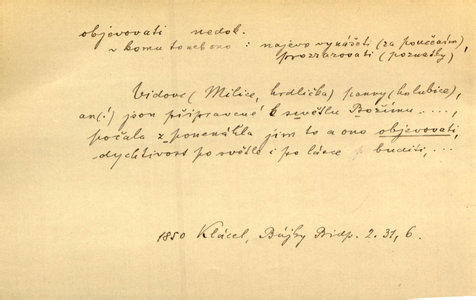 objevovati nedok.
v komu to neb ono : najevo vynášeti (za poučením),
prozrazovati (poznatky)
Vidouc (Milice, hrdlička) panny (holubice),
an (!) jsou připravené k světlu Božímu ....,
počala z ponenáhla jim to a ono objevovati,
dychtivost po světle i po lásce buditi, ...
1850 Klácel, Bájky Bidp. 2. 31, 6.